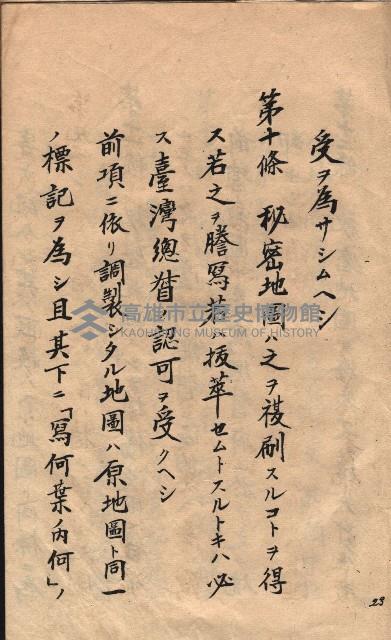 受ヲ為サシムヘシ
第十條 秘密地圖ハ之ヲ複刷スルコトヲ得
ス若之ヲ謄寫若ハ抜萃セムトスルトキハ必
ス臺灣總督ノ認可ヲ受クヘシ
前項ニ依リ調製シタル地圖ハ原地圖ト同一
ノ標記ヲ為シ且其下ニ「寫何葉ノ內何」ノ
高雄市立歷史博物館
KAOHSIUNG MUSEUM OF HISTORY
23